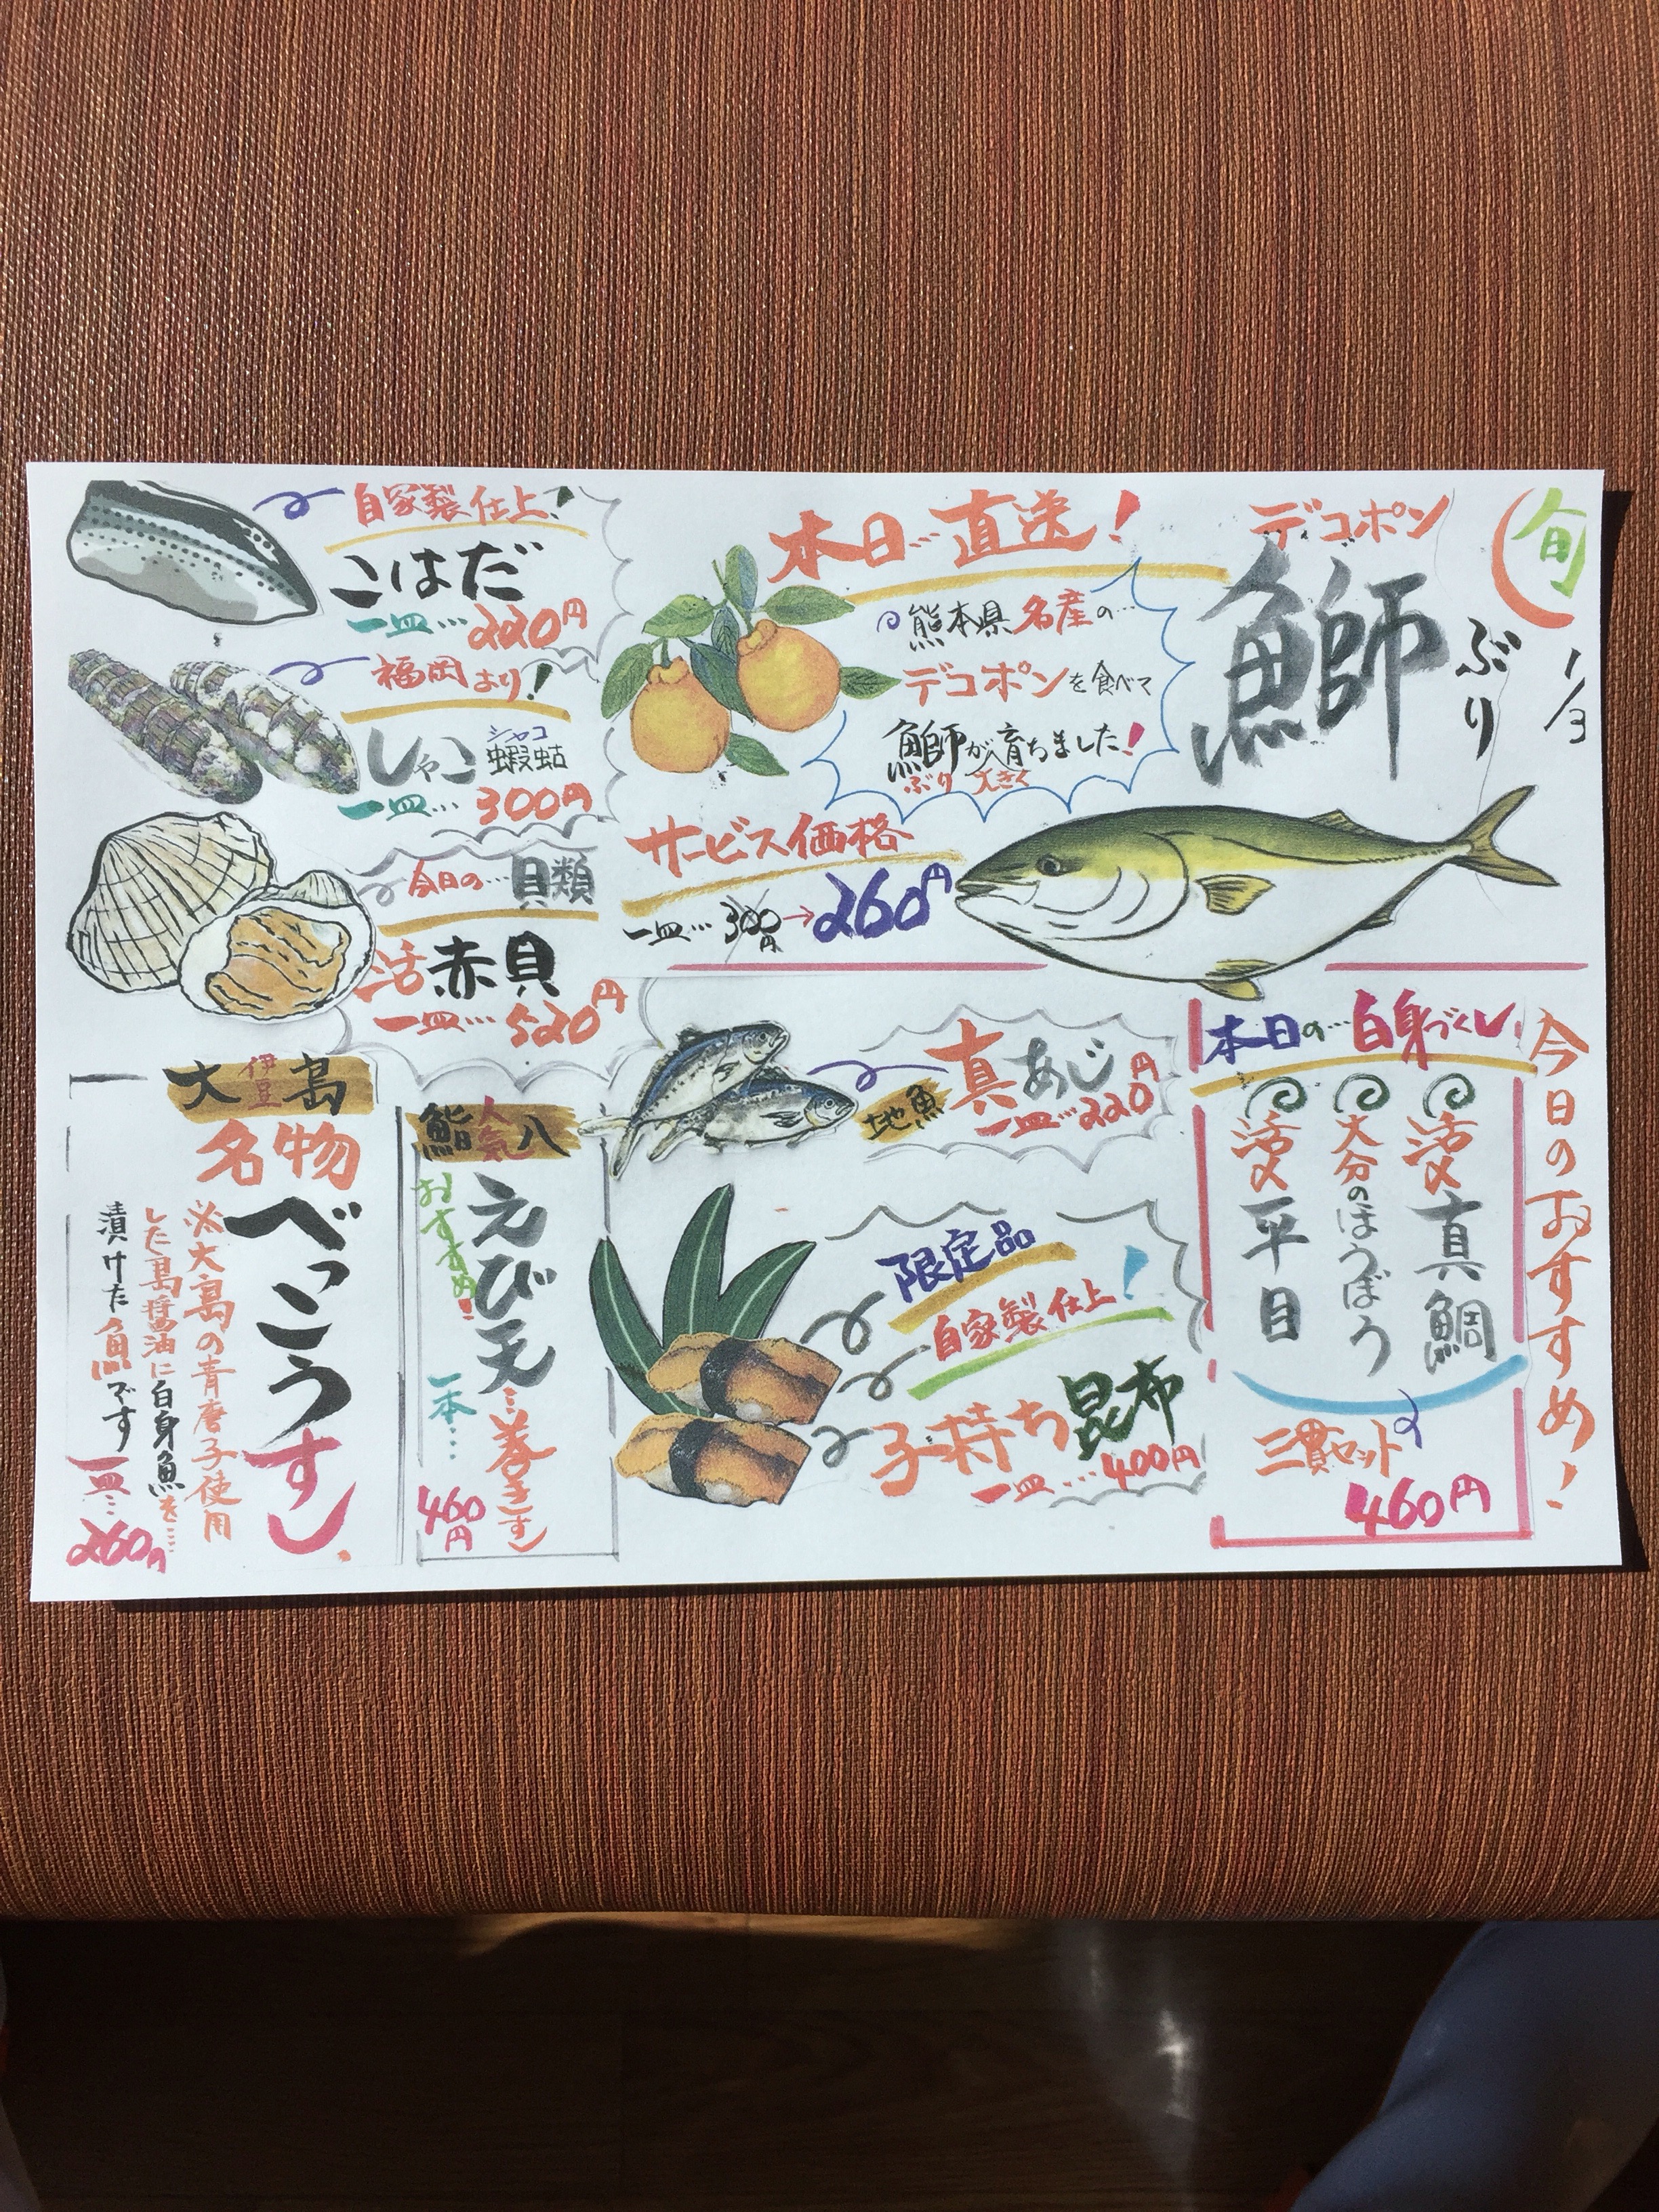 旬
1/3
デコポン
鰤
ぶり
本日…直送!
熊本県名産の…
デコポンを食べて
鰤が育ちました!
ぶり 大きく
サービス価格
一皿…300円→260円
自家製仕上!
こはだ
一皿…220円
福岡より!
しゃこ
シャコ
蝦蛄
一皿…300円
今日の…貝類
活赤貝
一皿…520円
今日のおすすめ!
本日の…白身づくし
活〆真鯛
大分のほうぼう
活〆平目
三貫セット
460円
地魚
真あじ
一皿…220円
限定品
自家製仕上!
子持ち昆布
一皿…400円
鮨人気八
えび天…巻きずし
おすすめ!
一本…
460円
大伊豆島
名物
べっこうずし
※大島の青唐子使用
した島醤油に白身魚を…
漬けた魚です
一皿…
260円